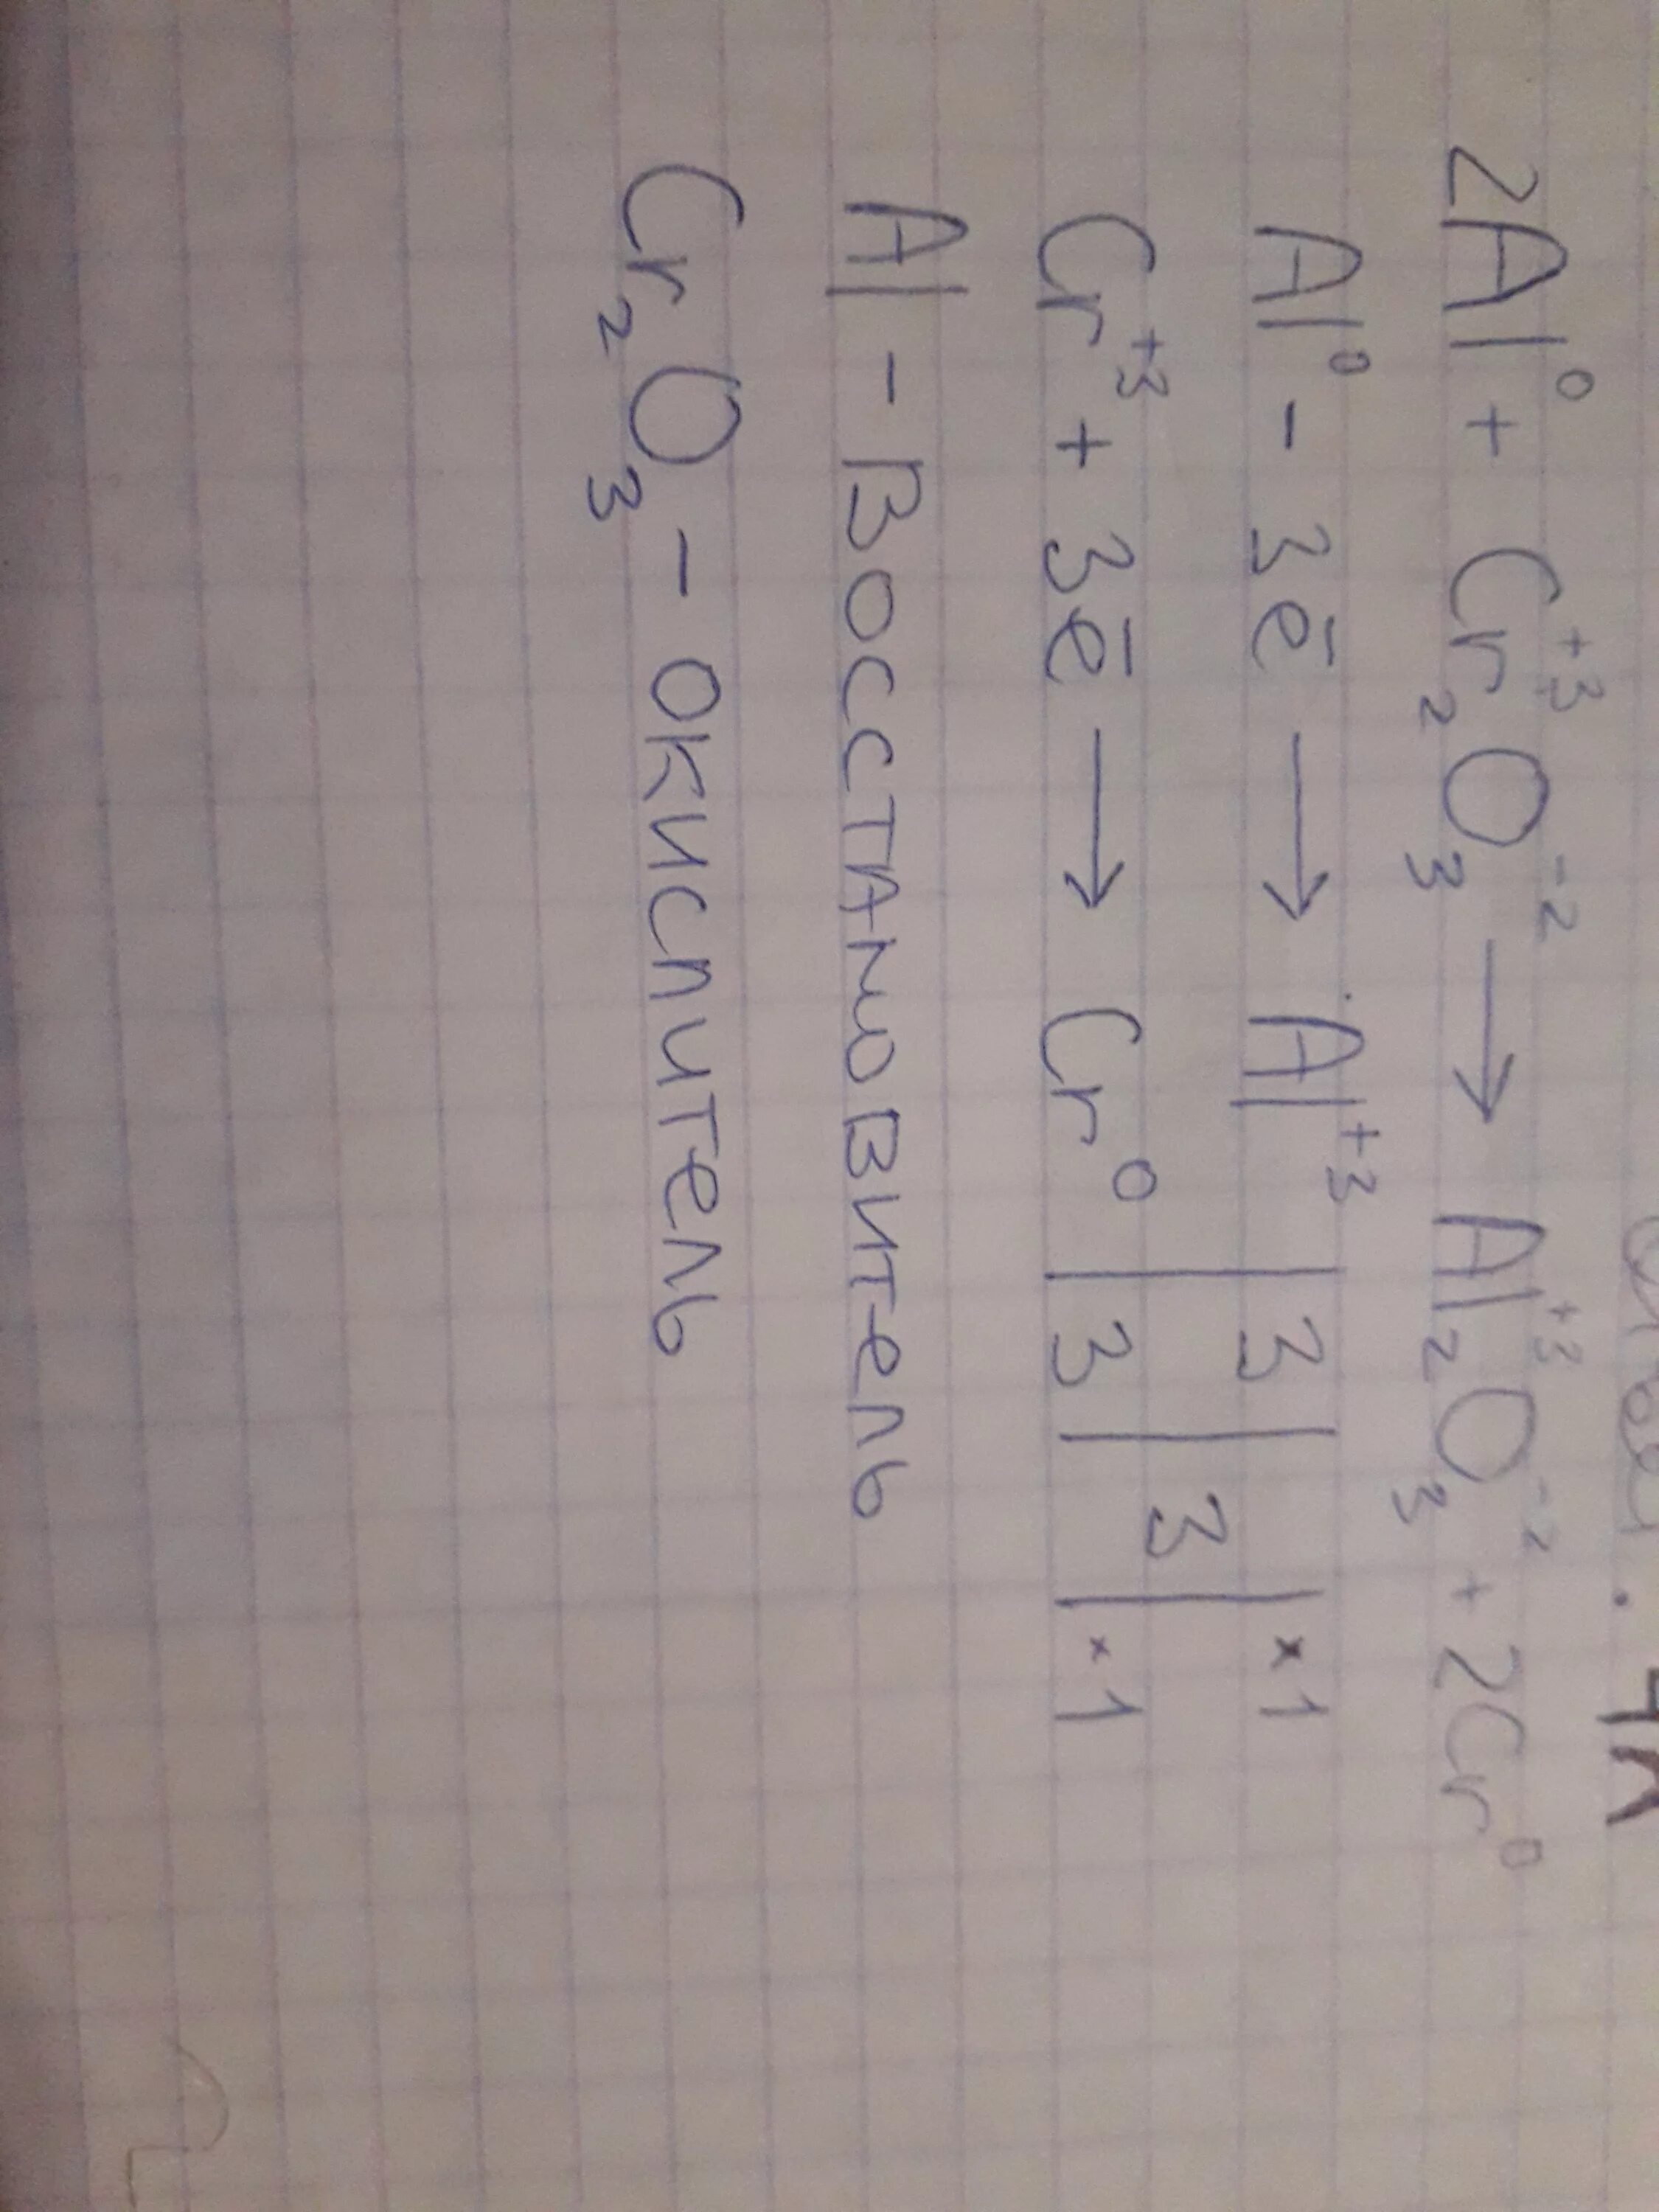 2Al⁰ + Cr₂⁺³O₃⁻² → Al₂⁺³O₃⁻² + 2Cr⁰
Al⁰ - 3ē → Al⁺³ | 3 | 3 | ×1
Cr⁺³ + 3ē → Cr⁰ | 3 | | ×1
Al - Восстановитель
Cr₂O₃ - окислитель